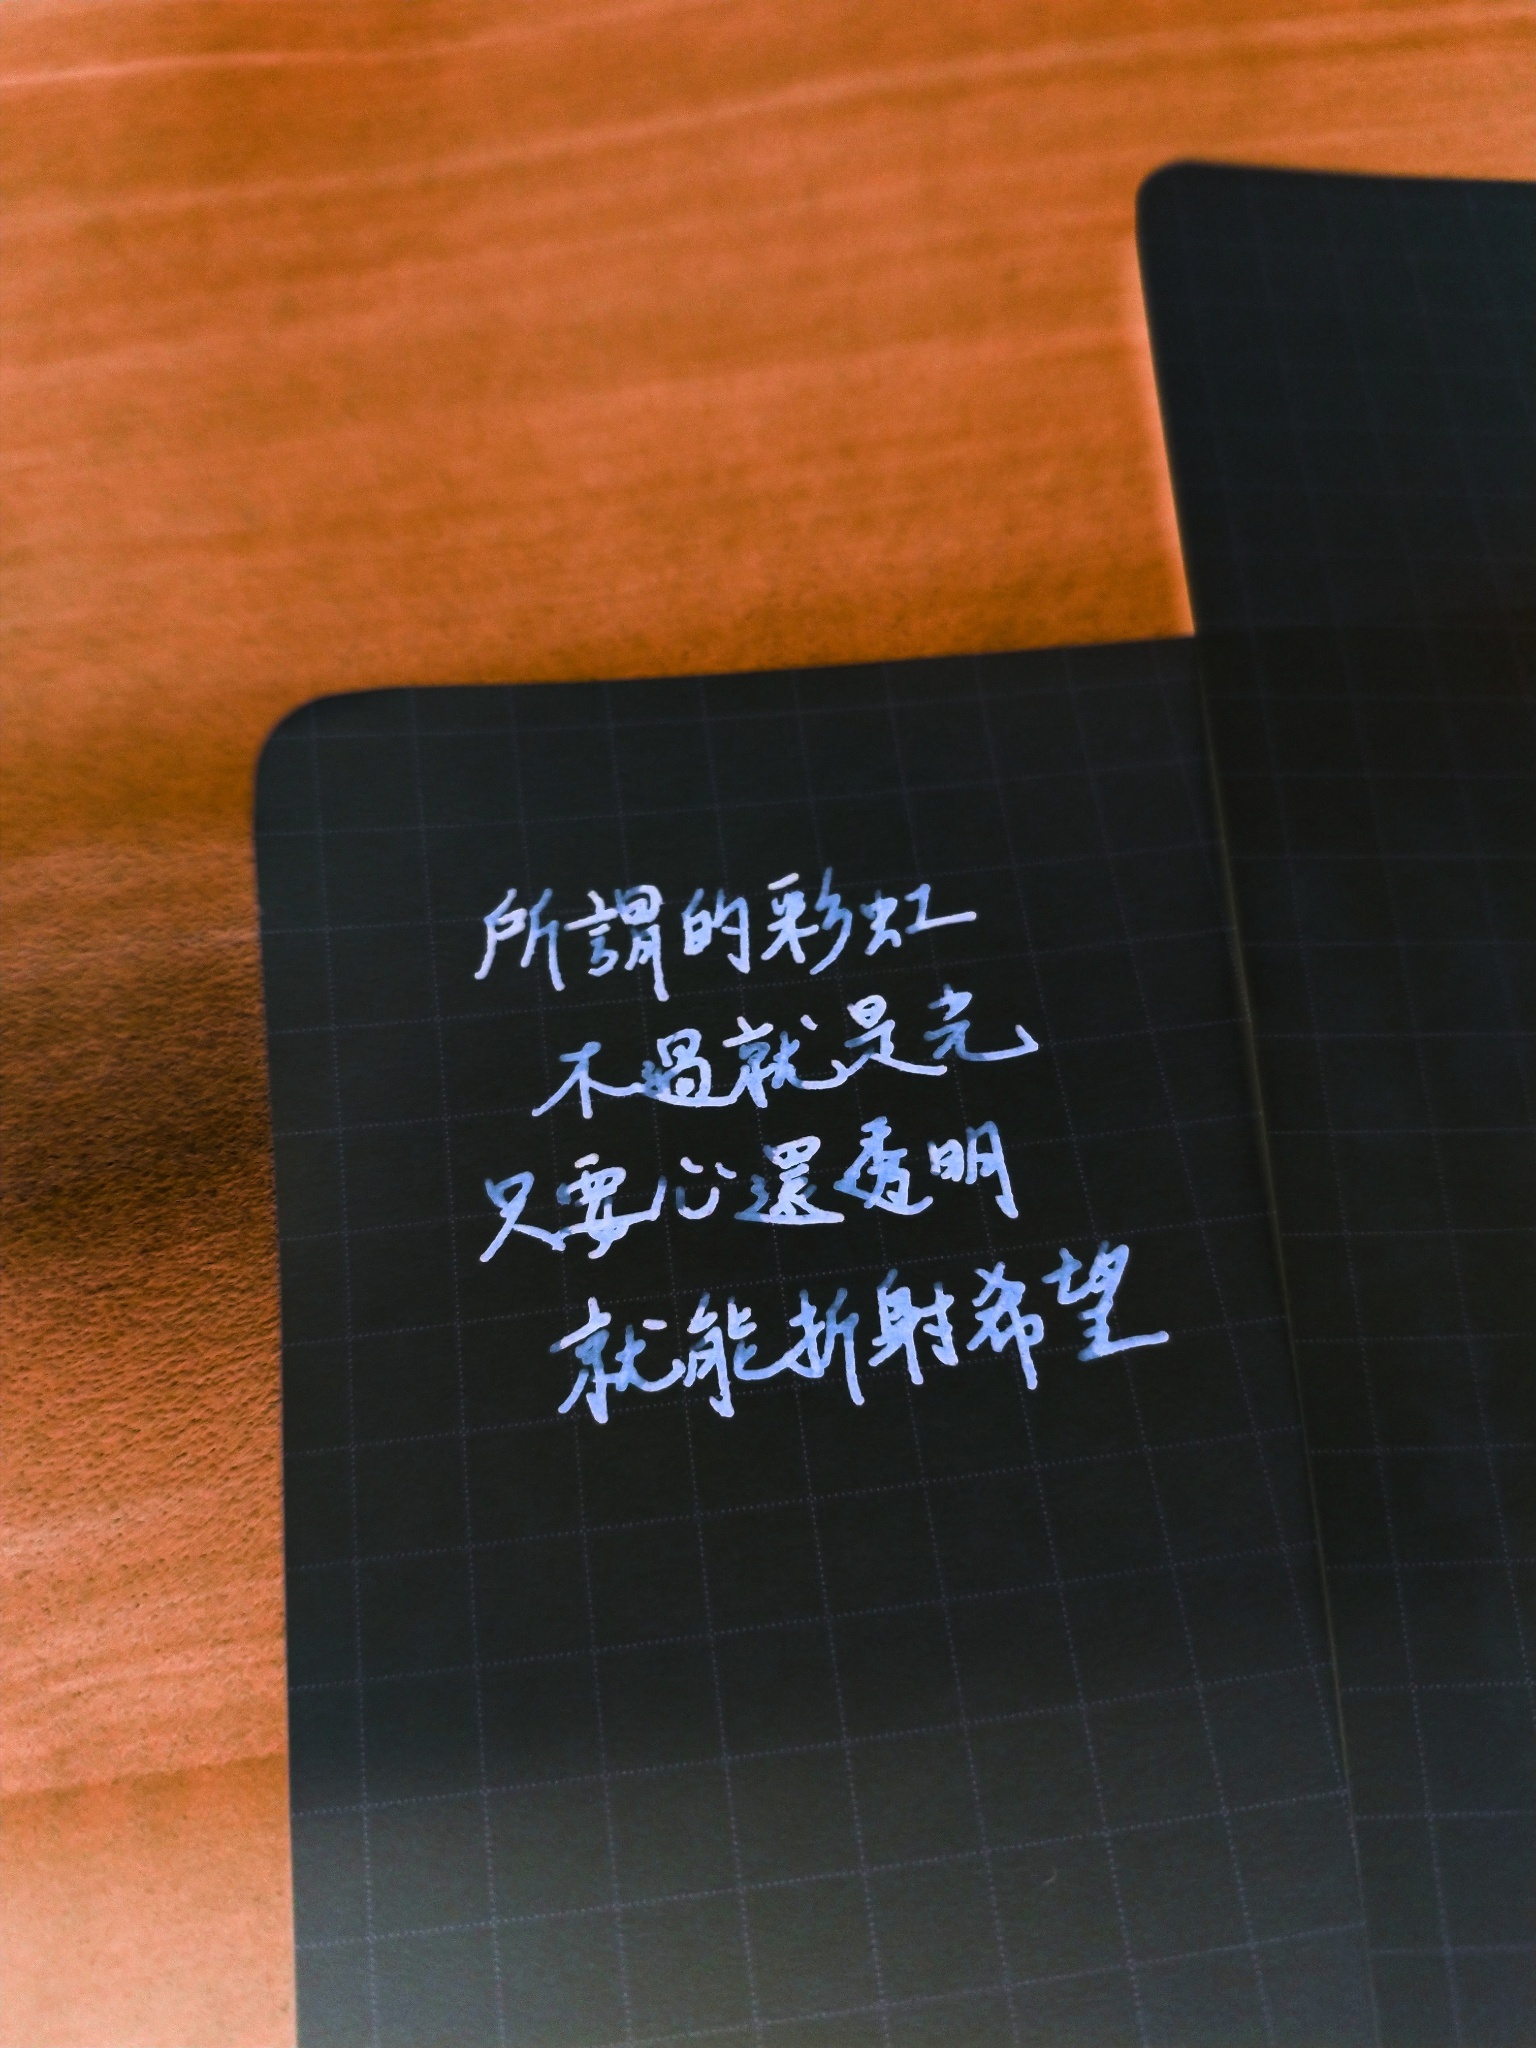 所謂的彩虹
不過就是光
只要心還透明
就能折射希望